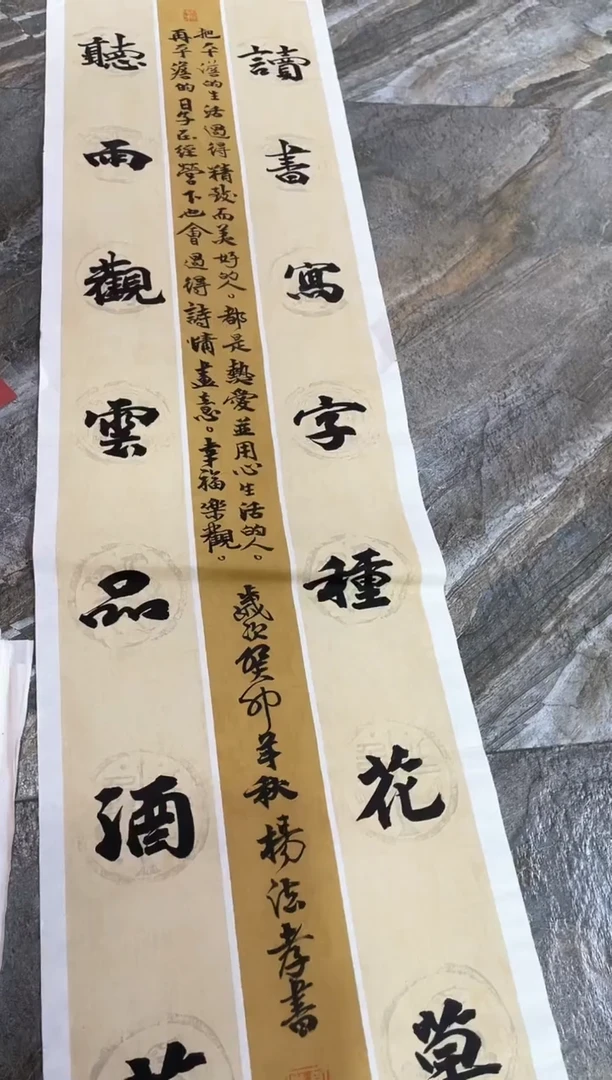 讀書寫字種花草
把平澹的生活過得精致而美好的人。都是熱愛並用心生活的人。
再平澹的日子在經營下也會過得詩情畫意。幸福樂觀。
歲次癸卯年秋楊法孝書
聽雨觀雲品酒